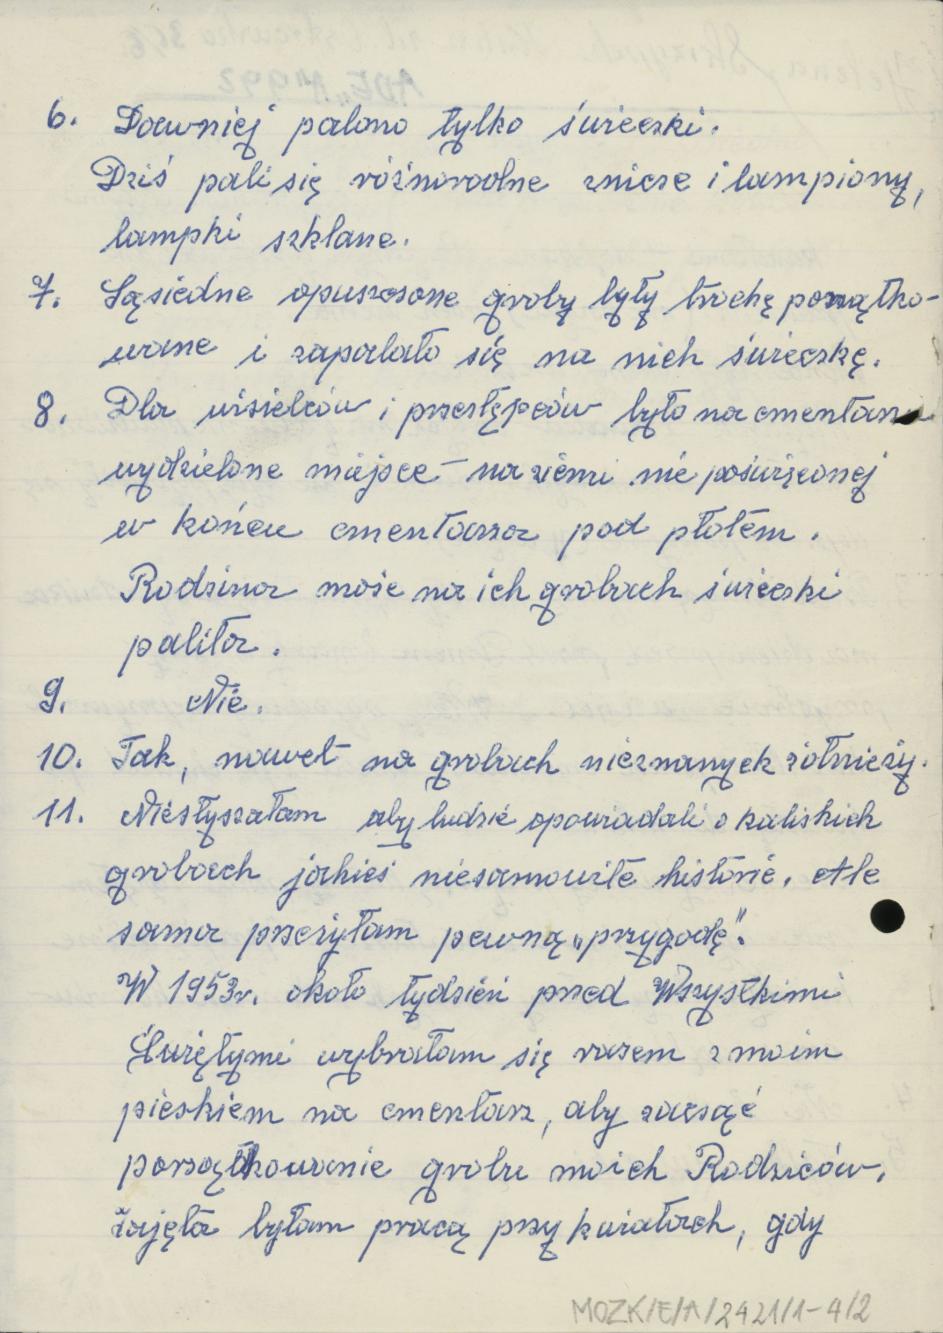 6. Dawniej palono tylko świeczki.
Dziś pali się różnorodne znicze i lampiony,
lampki szklane.
7. Sąsiedne opuszczone groby były trochę porządko-
wane i zapalało się na nich świeczkę.
8. Dla wisielców i przestępców było na cmentarzu
wydzielone miejsce – na ziemi nie poświęconej
w końcu cmentarza pod płotem.
Rodzina może na ich grobach świeczki
paliła.
9. Nie.
10. Tak, nawet na grobach nieznanych żołnierzy.
11. Niesłyszałam aby ludzie opowiadali o kaliskich
grobach jakieś niesamowite historie. Ale
sama przeżyłam pewną „przygodę".
W 1953r. około tydzień przed Wszystkimi
Świętymi wybrałam się razem z moim
pieskiem na cmentarz, aby zacząć
porządkowanie grobu moich Rodziców.
Zajęta byłam pracą przy kwiatach, gdy
MOZK/E/A/2421/1-4/2